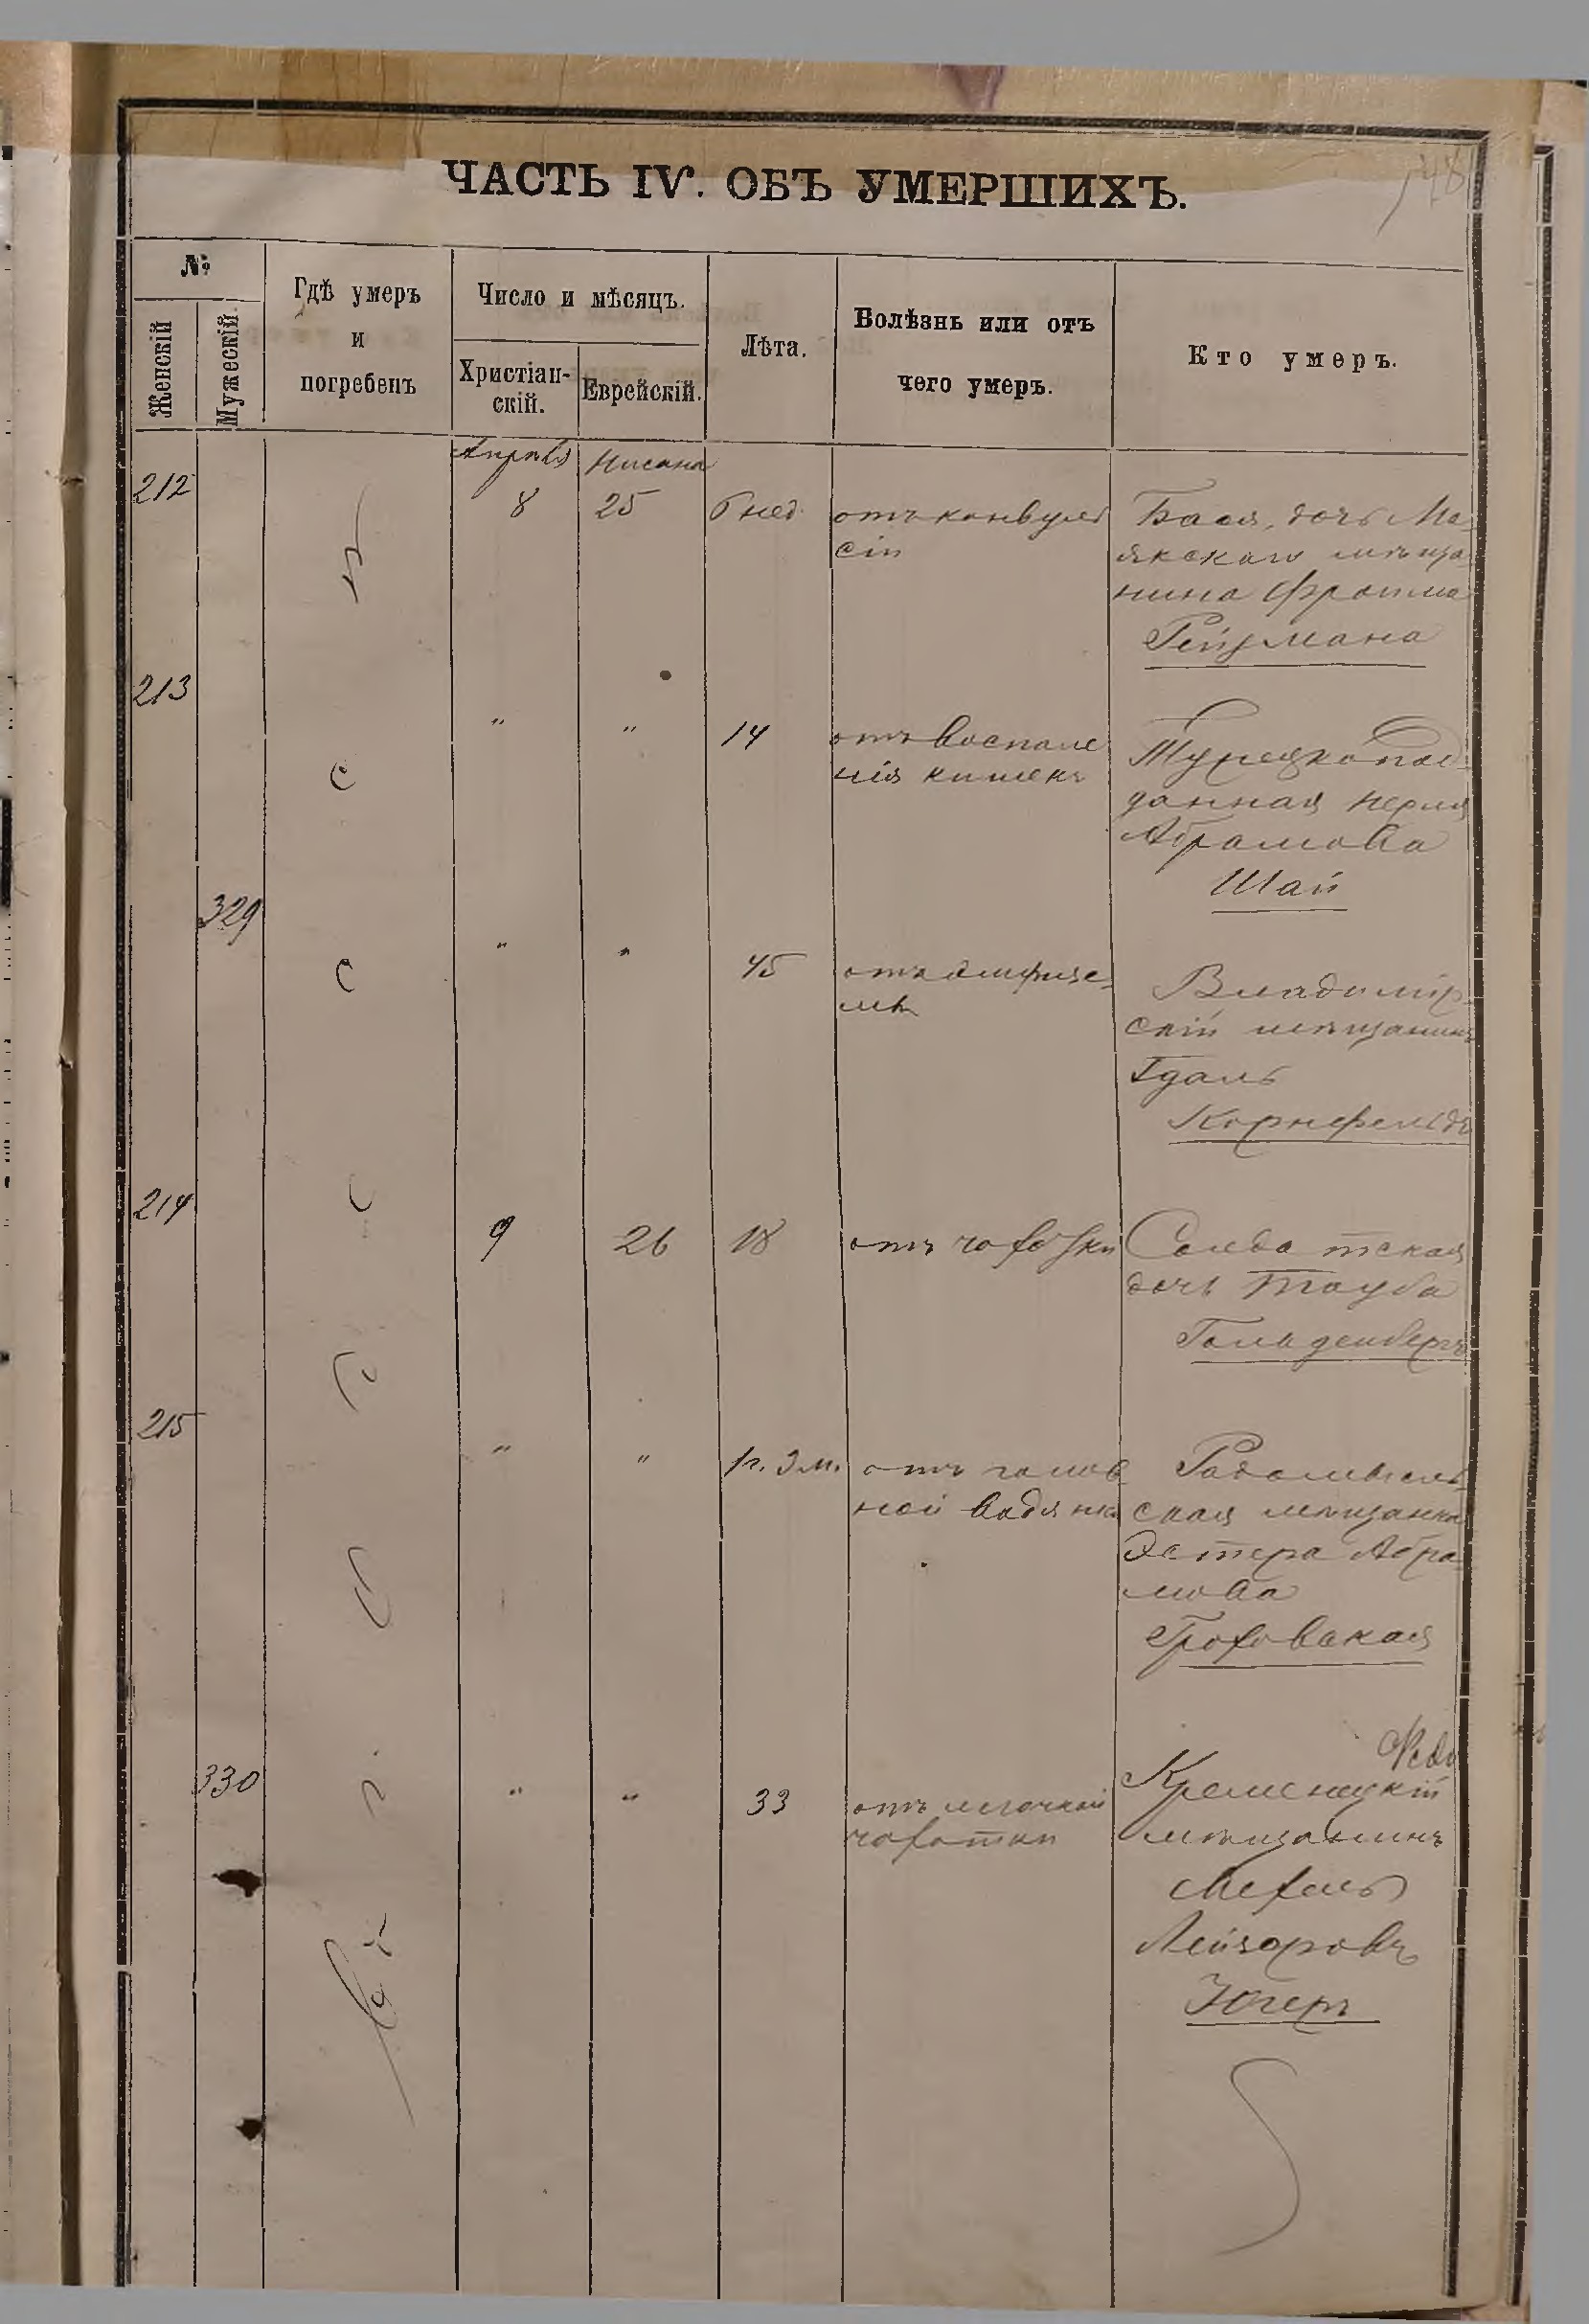 148
ЧАСТЬ IV. ОБЪ УМЕРШИХЪ.
№
Женскій
Мужескій
Гдѣ умеръ
и
погребенъ
Число и мѣсяцъ.
Христіан-
скій.
Еврейскій.
Лѣта.
Болѣзнь или отъ
чего умеръ.
Кто умеръ.
Апрѣль
Нисана
212
8
25
6 нед.
отъ конвуль
сіи
Бася, дочь Ма-
якскаго мѣща-
нина Фроима
Рейзмана
213
"
"
14
отъ воспале
нія кишекъ
Турецкопод-
данная Перля
Абрамова
Шай
329
"
"
45
отъ эмфизе-
мы
Владимір-
скій мѣщанинъ
Гдаль
Корнфельдъ
214
9
26
18
отъ чахотки
Солдатская
дочь Тауба
Гольденбергъ
215
"
"
1 г. 3 м.
отъ голов
ной водянки
Радомысль-
ская мѣщанка
Эстера Абра-
мова
Гроховская
330
"
"
33
отъ легочной
чахотки
Кременецкій
мѣщанинъ
Мехель
Лейзоровъ
Югеръ